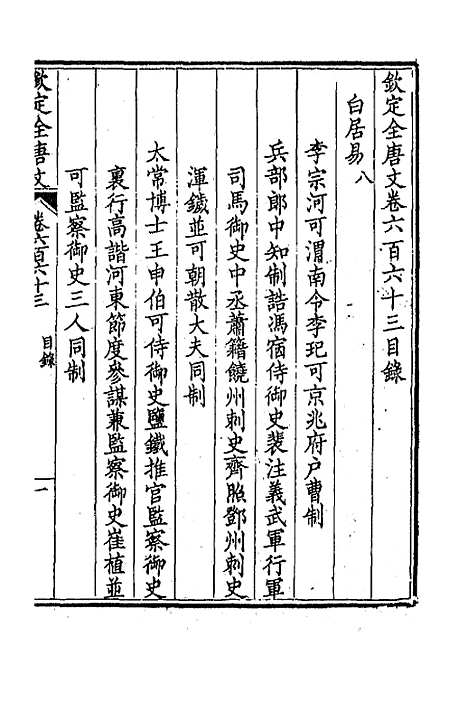 欽定全唐文卷六百六十三目錄
白居易八
李宗河可渭南令李玘可京兆府户曹制
兵部郎中知制誥馮宿侍御史裴注義武軍行軍
司馬御史中丞蕭籍饒州刺史齊照鄧州刺史
渾鐬並可朝散大夫同制
太常博士王申伯可侍御史鹽鐵推官監察御史
裏行高諧河東節度參謀兼監察御史崔植並
可監察御史三人同制
欽定全唐文 卷六百六十三 目錄 一